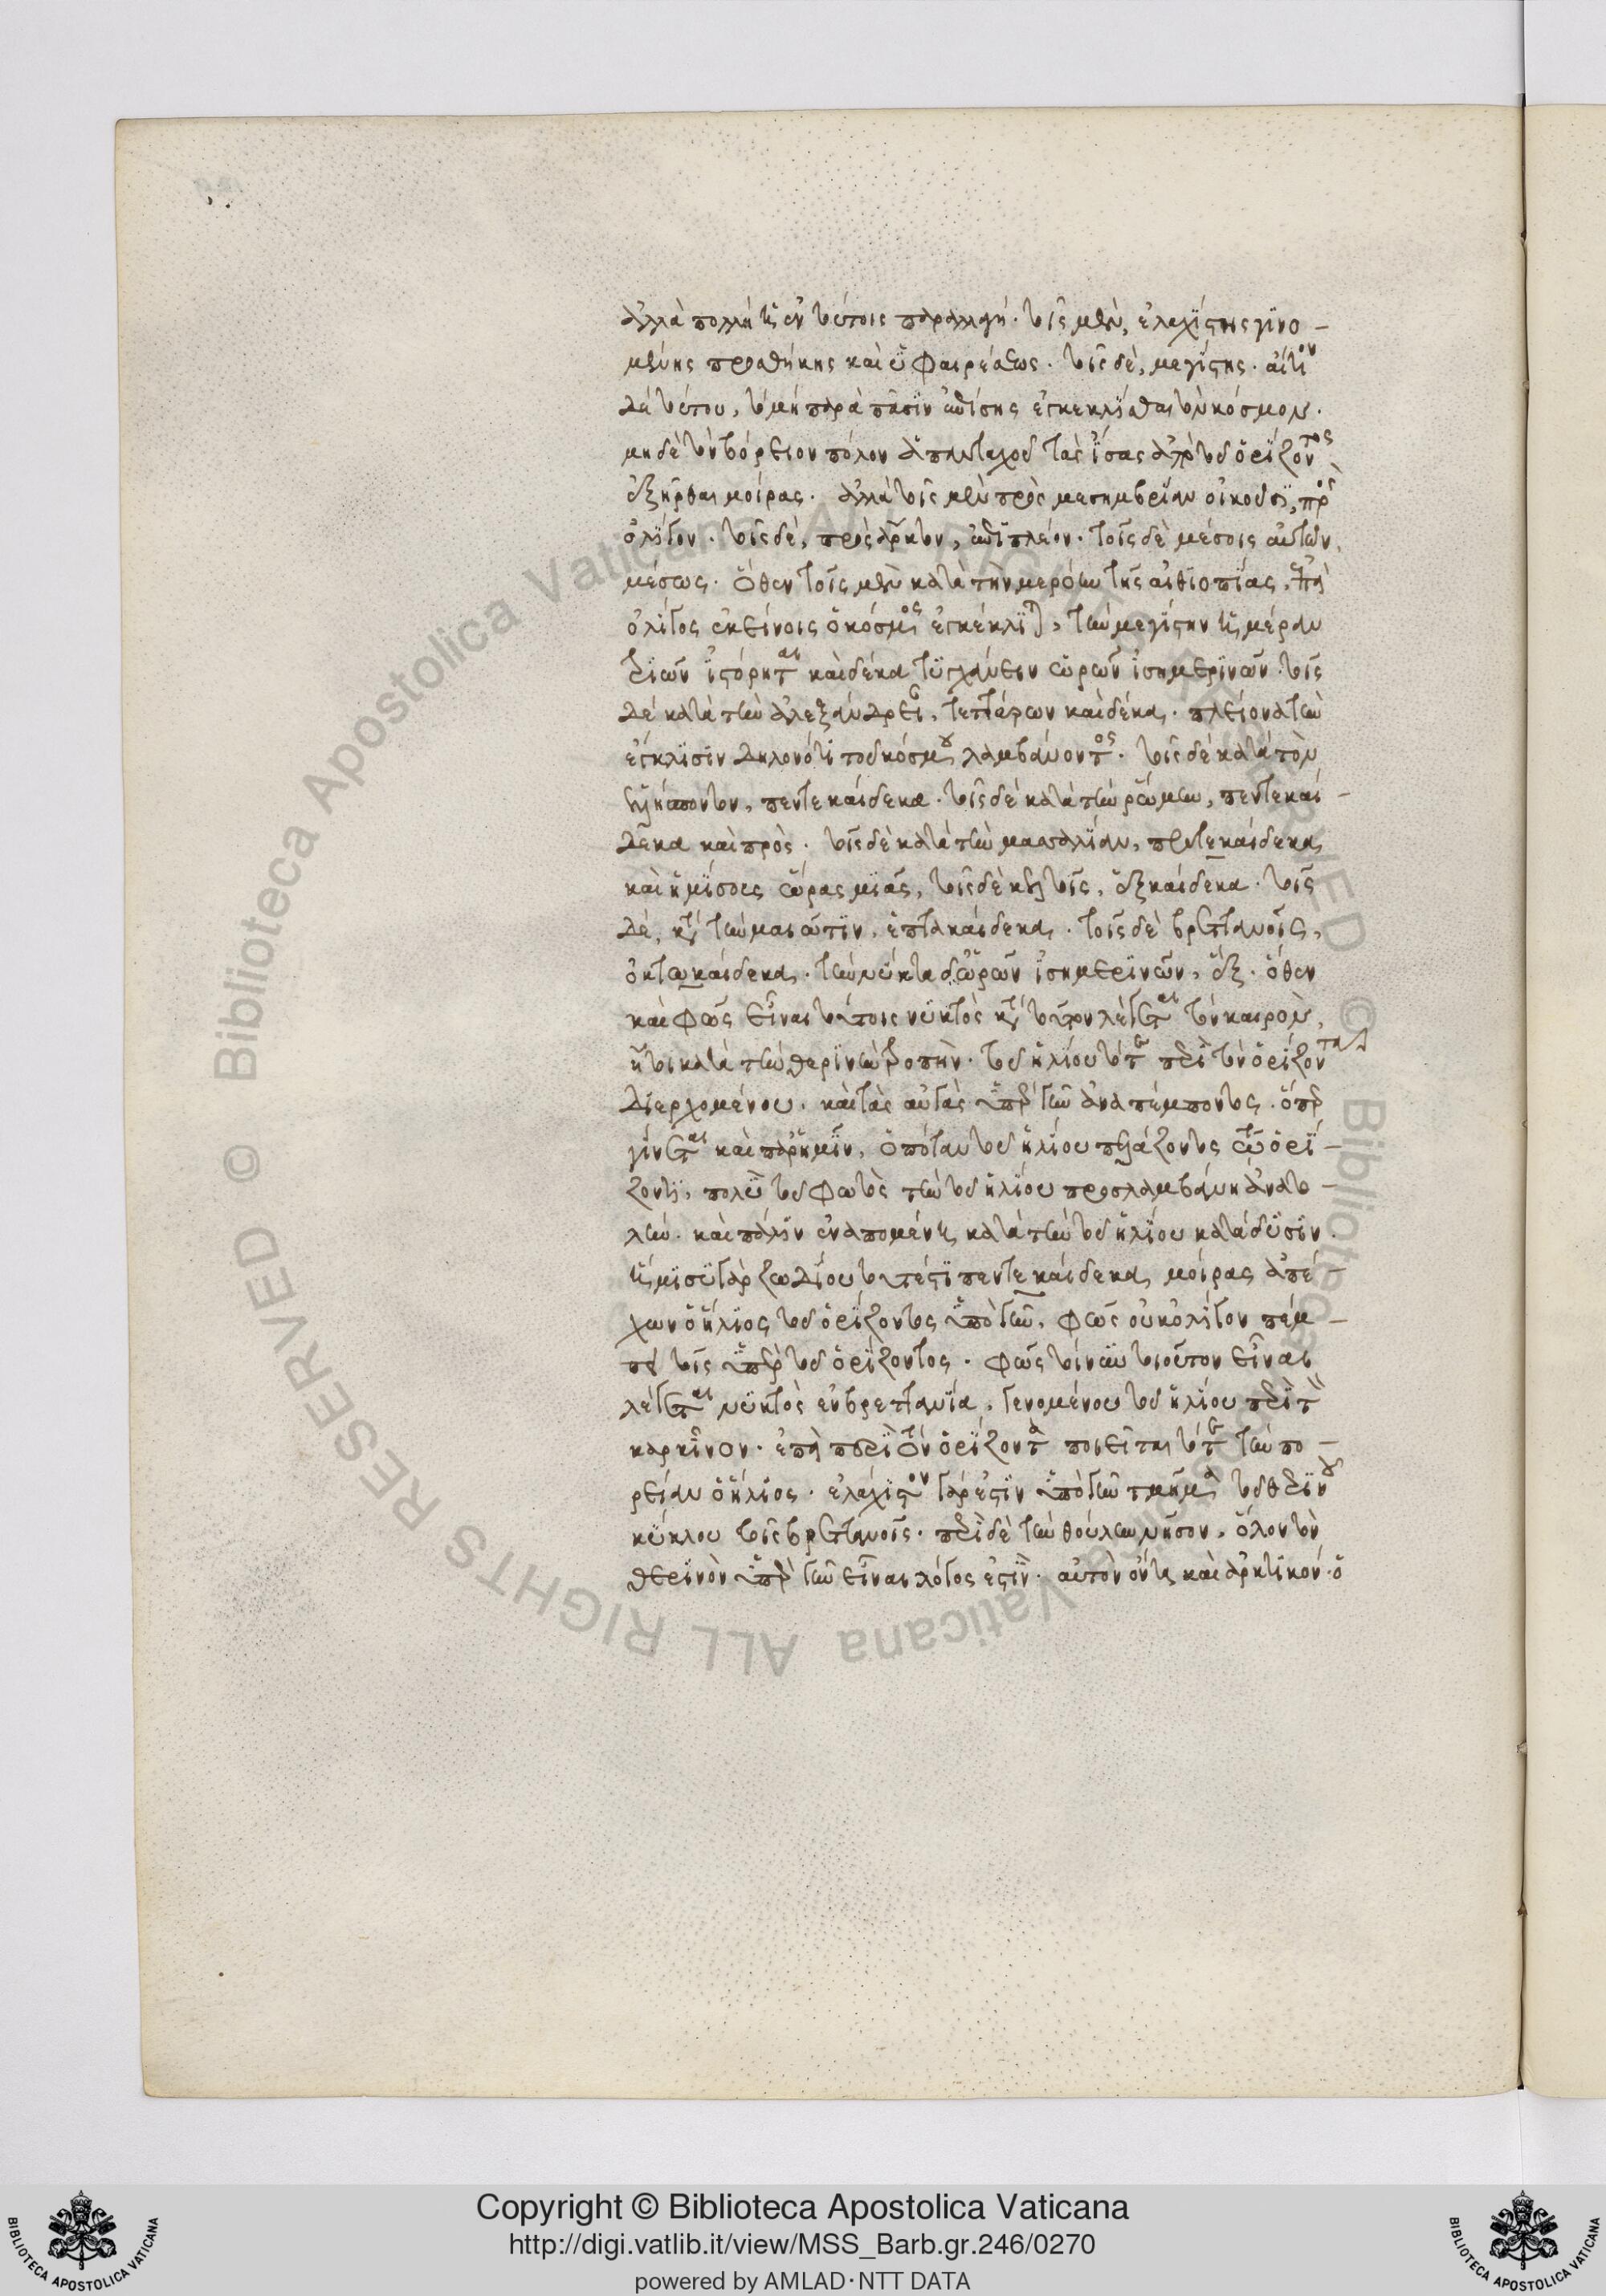 ἀλλὰ πολλή τις ἐν τούτοις παραλλαγή. τοῖς μὲν, ἐλαχίστης γινο-
μένης προσθήκης καὶ ὑφαιρέσεως. τοῖς δὲ, μεγίστης. αἴτιον
δὲ τούτου, τὸ μὴ παρὰ πᾶσιν ἐπίσης ἐγκεκλίσθαι τὸν κόσμον.
μηδὲ τὸν βόρειον πόλον ἁπανταχοῦ τὰς ἴσας ἀπὸ τοῦ ὁρίζοντος
ἐξῆρθαι μοίρας. ἀλλὰ τοῖς μὲν πρὸς μεσημβρίαν οἰκοῦσι, πρὸς
ὀλίγον. τοῖς δὲ, πρὸς ἄρκτον, ἐπὶ πλέον. τοῖς δὲ μέσοις αὐτῶν,
μέσως. ὅθεν τοῖς μὲν κατὰ τὴν μερόην τῆς αἰθιοπίας, ἐπεὶ
ὀλίγος ἐκείνοις ὁ κόσμος ἐγκέκλιται, τὴν μεγίστην ἡμέραν
τριῶν ἱστόρηται καὶ δέκα τυγχάνειν ὡρῶν ἰσημερινῶν. τοῖς
δὲ κατὰ τὴν ἀλεξάνδρειαν, τεττάρων καὶ δέκα. πλείονα τὴν
ἔγκλισιν δηλονότι τοῦ κόσμου λαμβάνοντος. τοῖς δὲ κατὰ τὸν
ἑλλήσποντον, πεντεκαίδεκα. τοῖς δὲ κατὰ τὴν ῥώμην, πεντεκαί-
δεκα καὶ πρὸς. τοῖς δὲ κατὰ τὴν μασσαλίαν, πεντεκαίδεκα
καὶ ἡμίσους ὥρας μιᾶς, τοῖς δὲ κελτοῖς, ἑξκαίδεκα. τοῖς
δὲ, κατὰ τὴν μαιῶτιν, ἑπτακαίδεκα. τοῖς δὲ βρεττανοῖς,
ὀκτωκαίδεκα. τὴν νύκτα δ' ὡρῶν ἰσημερινῶν, ἕξ. ὅθεν
καὶ φῶς εἶναι τούτοις νυκτὸς κατὰ τοῦτον λέγεται τὸν καιρὸν,
ἤτοι κατὰ τὴν θερινὴν τροπὴν. τοῦ ἡλίου τότε περὶ τὸν ὁρίζοντα
διερχομένου, καὶ τὰς αὐγὰς ὑπὲρ γῆν ἀναπέμποντος. ὅπερ
γίνεται καὶ παρ' ἡμῖν, ὁπόταν τοῦ ἡλίου πελάζοντος τῷ ὁρί-
ζοντι, πολὺ τοῦ φωτὸς τὴν τοῦ ἡλίου προσλαμβάνῃ ἀνατο-
λὴν. καὶ πάλιν ἐναπομένῃ κατὰ τὴν τοῦ ἡλίου κατάδυσιν.
ἥμισυ γὰρ ζωδίου τουτέστι πεντεκαίδεκα μοίρας ἀπέ-
χων ὁ ἥλιος τοῦ ὁρίζοντος ὑπὸ γῆν, φῶς οὐκ ὀλίγον πέμ-
πει τοῖς ὑπὲρ τοῦ ὁρίζοντος. φῶς τοίνυν τοιοῦτον εἶναι
λέγεται νυκτὸς ἐν βρεττανία, γενομένου τοῦ ἡλίου περὶ τὸν
καρκίνον. ἐπεὶ περὶ τὸν ὁρίζοντα ποιεῖται τότε τὴν πο-
ρείαν ὁ ἥλιος. ἐλάχιστον γάρ ἐστιν ὑπὸ γῆν τμῆμα τοῦ θερινοῦ
κύκλου τοῖς βρεττανοῖς. περὶ δὲ τὴν θούλην νῆσον, ὅλον τὸν
θερινὸν ὑπὲρ γῆν εἶναι λόγος ἐστὶν. αὐτὸν ὄντα καὶ ἀρκτικόν. ὁ
Copyright © Biblioteca Apostolica Vaticana
http://digi.vatlib.it/view/MSS_Barb.gr.246/0270
powered by AMLAD·NTT DATA